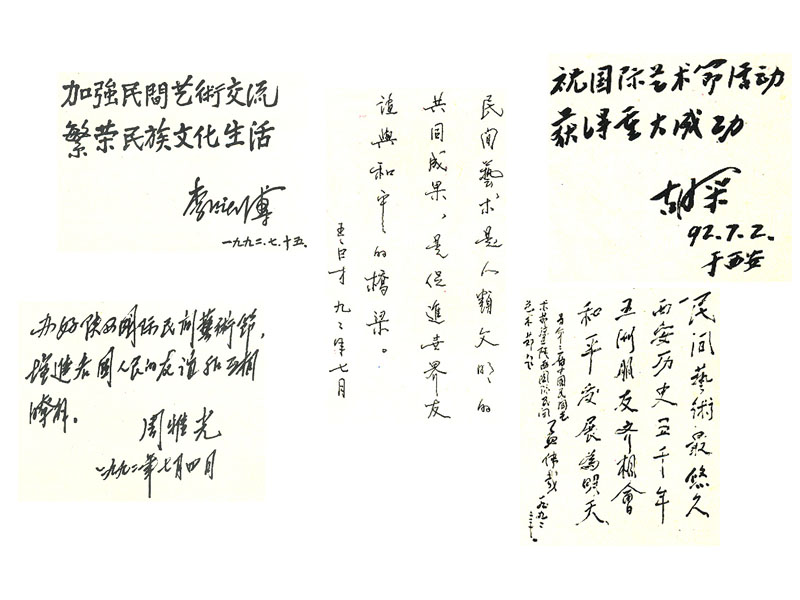 加強民間艺術交流
繁荣民族文化生活
一九九二.七.十五.
民间藝术是人類文明的
共同成果，是促進世界友
谊與和平的橋梁。
九二年七月
祝国际艺术節活动
获得重大成功
胡采
92.7.2.
于西安
办好陕西国际民间藝術節，
增进各国人民的友谊和互相
瞭解。
周雅光
一九九二年七月四日
民间藝術最悠久
西安历史五千年
五洲朋友齐相會
和平发展為明天